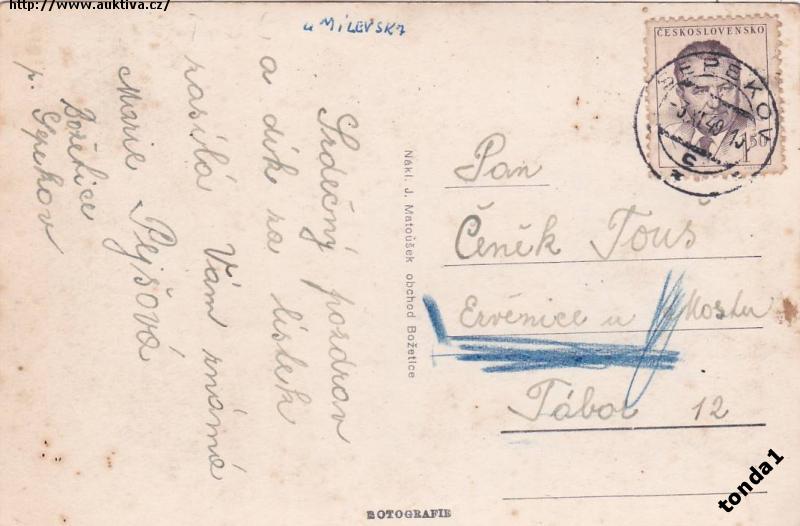 http://www.auktiva.cz/
u MILEVSKA
Srdečný pozdrav
a dík za lístek
zasílá Vám známá
Marie Pejšová
Božetice
p. Sepekov
Nákl. J. Matoušek obchod Božetice
ČESKOSLOVENSKO
1.50
SEPEKOV
Pan
Čeněk Touš
Ervěnice u Mostu
Tábor 12
FOTOGRAFIE
tonda1